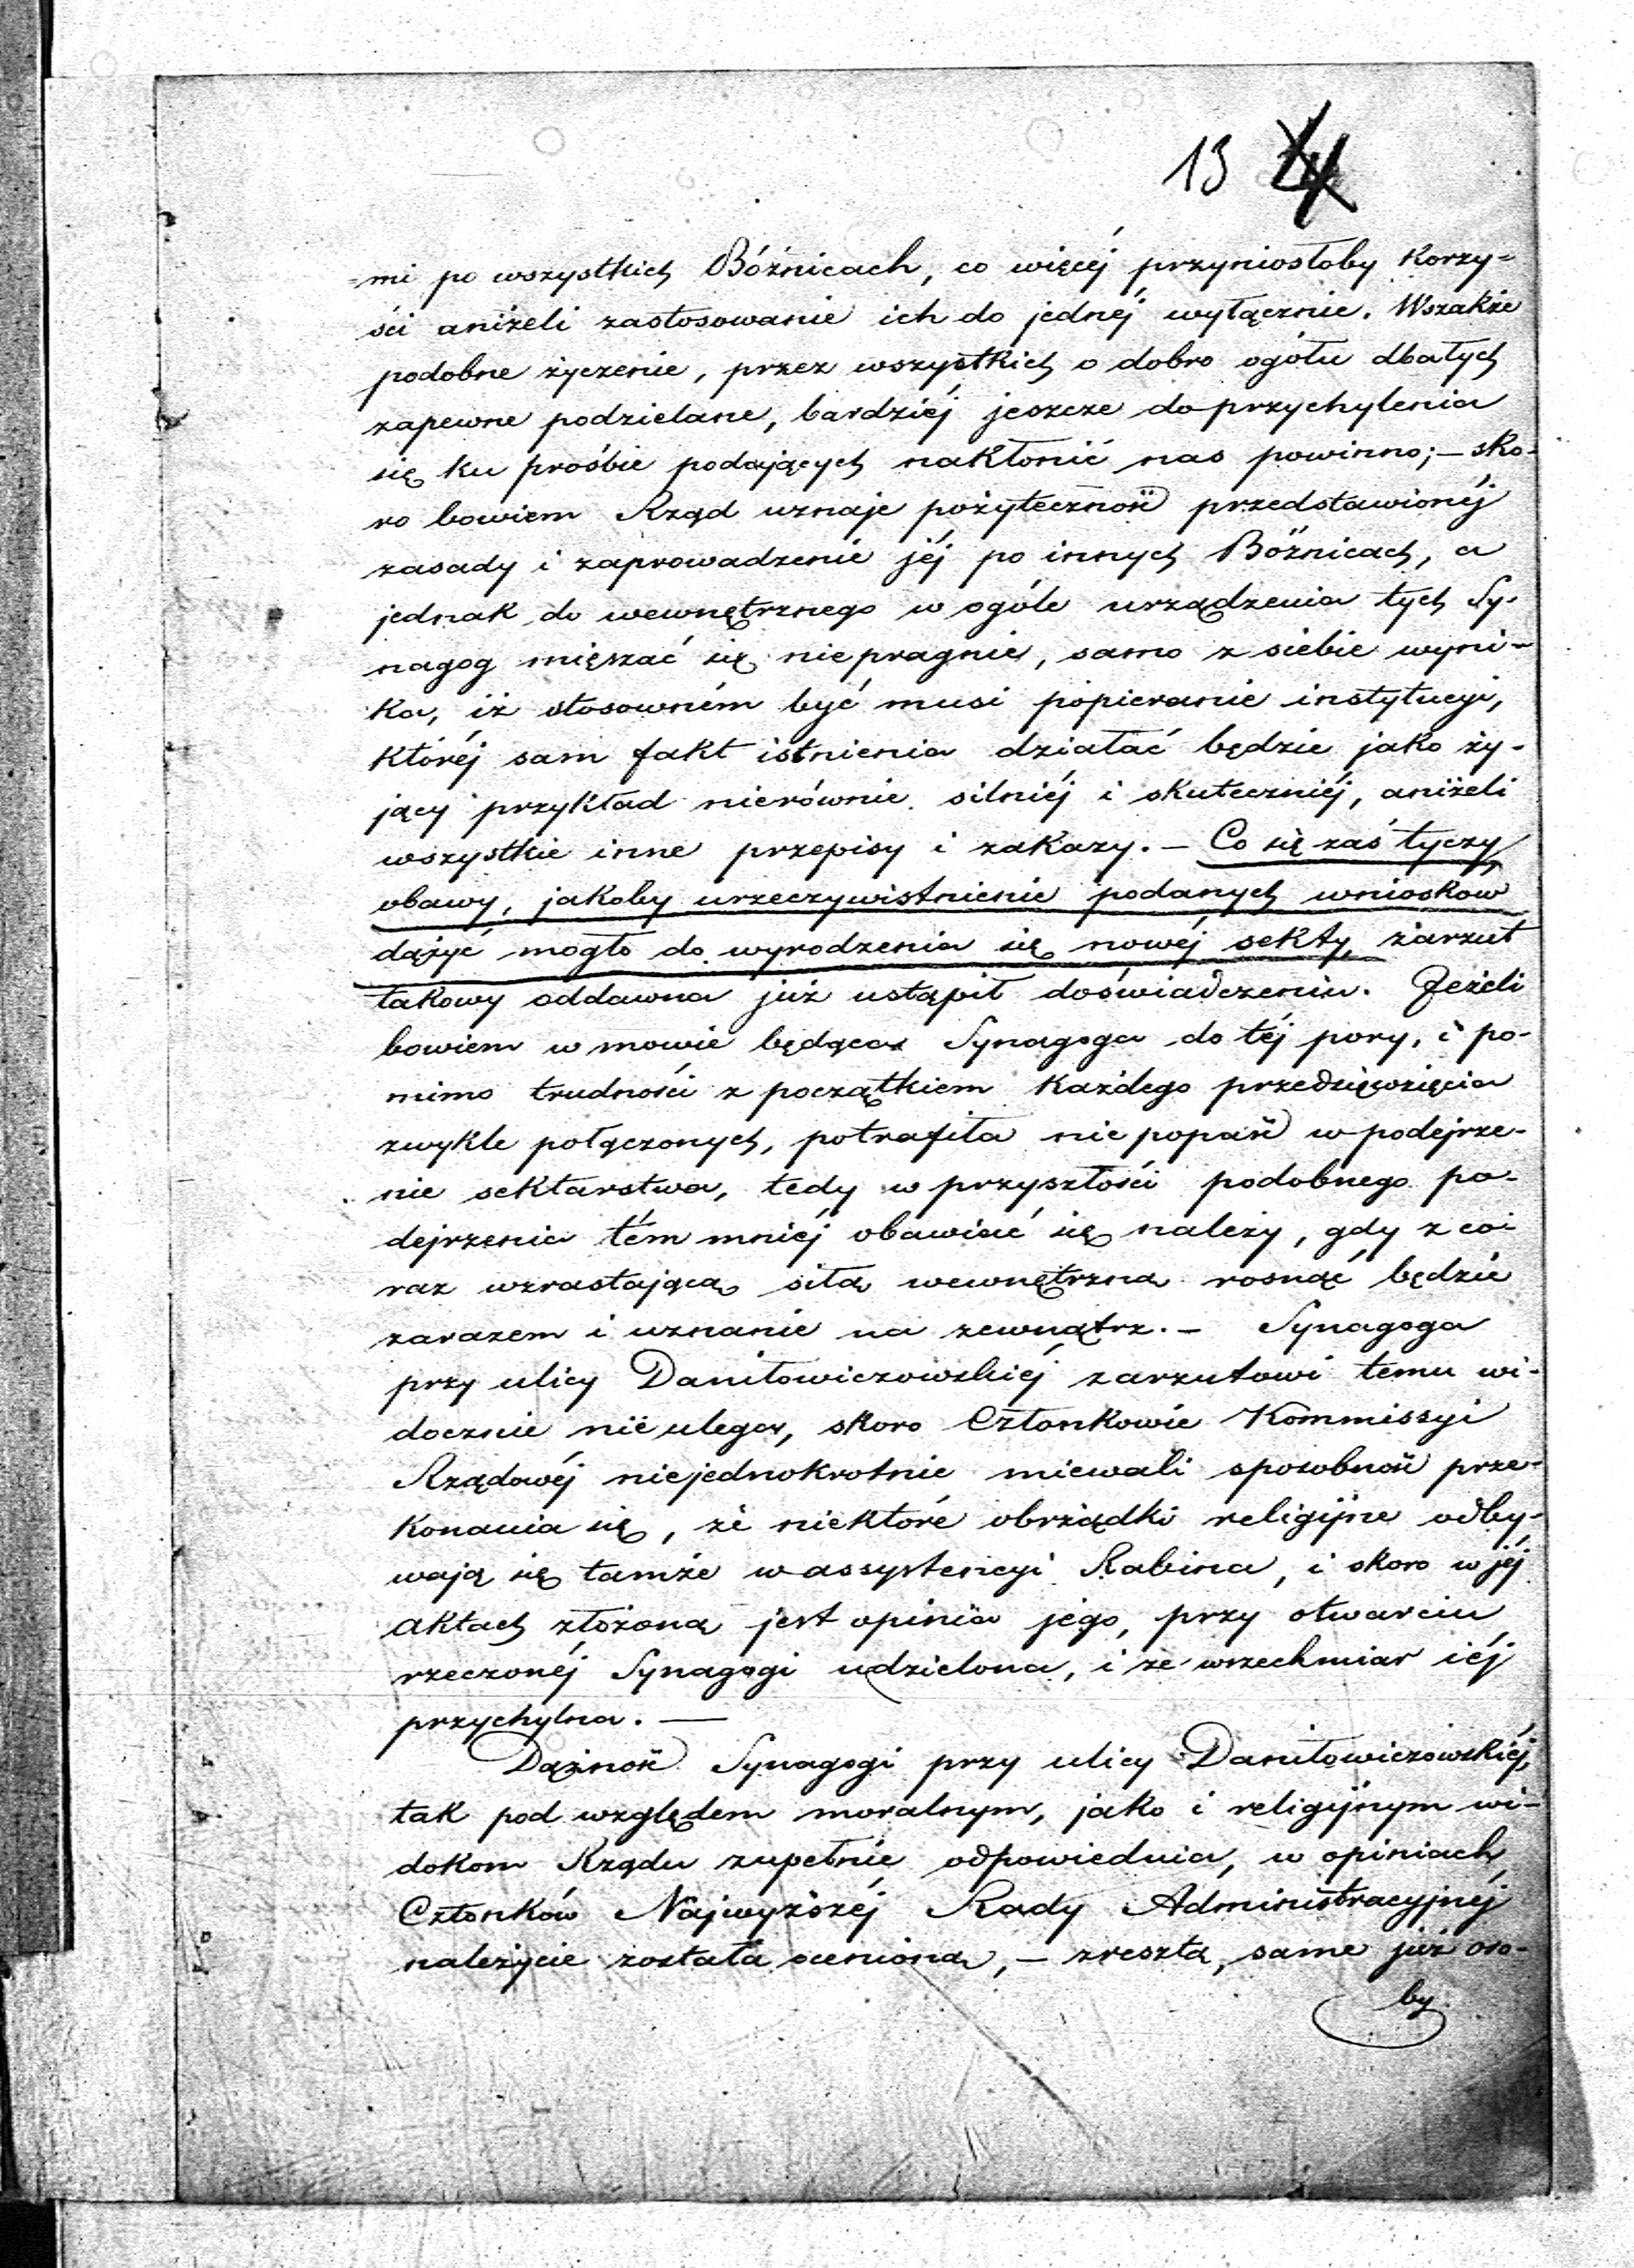 13
=mi po wszystkich Bóżnicach, co więcéj przyniosłoby korzy=
ści aniżeli zastosowanie ich do jednéj wyłącznie. Wszakże
podobne życzenie, przez wszystkich o dobro ogółu dbałych
zapewne podzielane, bardziéj jeszcze do przychylenia
się ku prośbie podających nakłonić nas powinno; – sko-
ro bowiem Rząd uznaje pożyteczność przedstawionéj
zasady i zaprowadzenie jéj po innych Bóżnicach, a
jednak do wewnętrznego w ogóle urządzenia tych Sy-
nagog mięszać się nie pragnie, samo z siebie wyni-
ka, iż stosowném być musi popieranie instytucyi,
któréj sam fakt istnienia działać będzie jako ży-
jący przykład nierównie silniéj i skuteczniéj, aniżeli
wszystkie inne przepisy i zakazy. – Co się zaś tyczy
obawy, jakoby urzeczywistnienie podanych wniosków
dążyć mogło do wyrodzenia się nowéj sekty, zarzut
takowy oddawna już ustąpił doświadczeniu. Jeżeli
bowiem w mowie będąca Synagoga do téj pory, i po-
mimo trudności z początkiem każdego przedsięwzięcia
zwykle połączonych, potrafiła nie popaść w podejrze-
nie sektarstwa, tedy w przyszłości podobnego po-
dejrzenia tém mniéj obawiać się należy, gdy z co-
raz wzrastającą siłą wewnętrzną rosnąć będzie
zarazem i uznanie na zewnątrz. – Synagoga
przy ulicy Daniłowiczowskiéj zarzutowi temu wi-
docznie nie ulega, skoro Członkowie Kommissyi
Rządowéj niejednokrotnie miewali sposobność prze-
konania się, że niektóre obrządki religijne odby-
wają się tamże w assystencyi Rabina, i skoro w jéj
aktach złożoną jest opinia jego, przy otwarciu
rzeczonéj Synagogi udzielona, i ze wszechmiar iéj
przychylna. —
Dążność Synagogi przy ulicy Daniłowiczowskiéj,
tak pod względem moralnym, jako i religijnym wi-
dokom Rządu zupełnie odpowiednia, w opiniach
Członków Najwyższéj Rady Administracyjnéj
należycie została oceniona, – zresztą, same już oso-
by